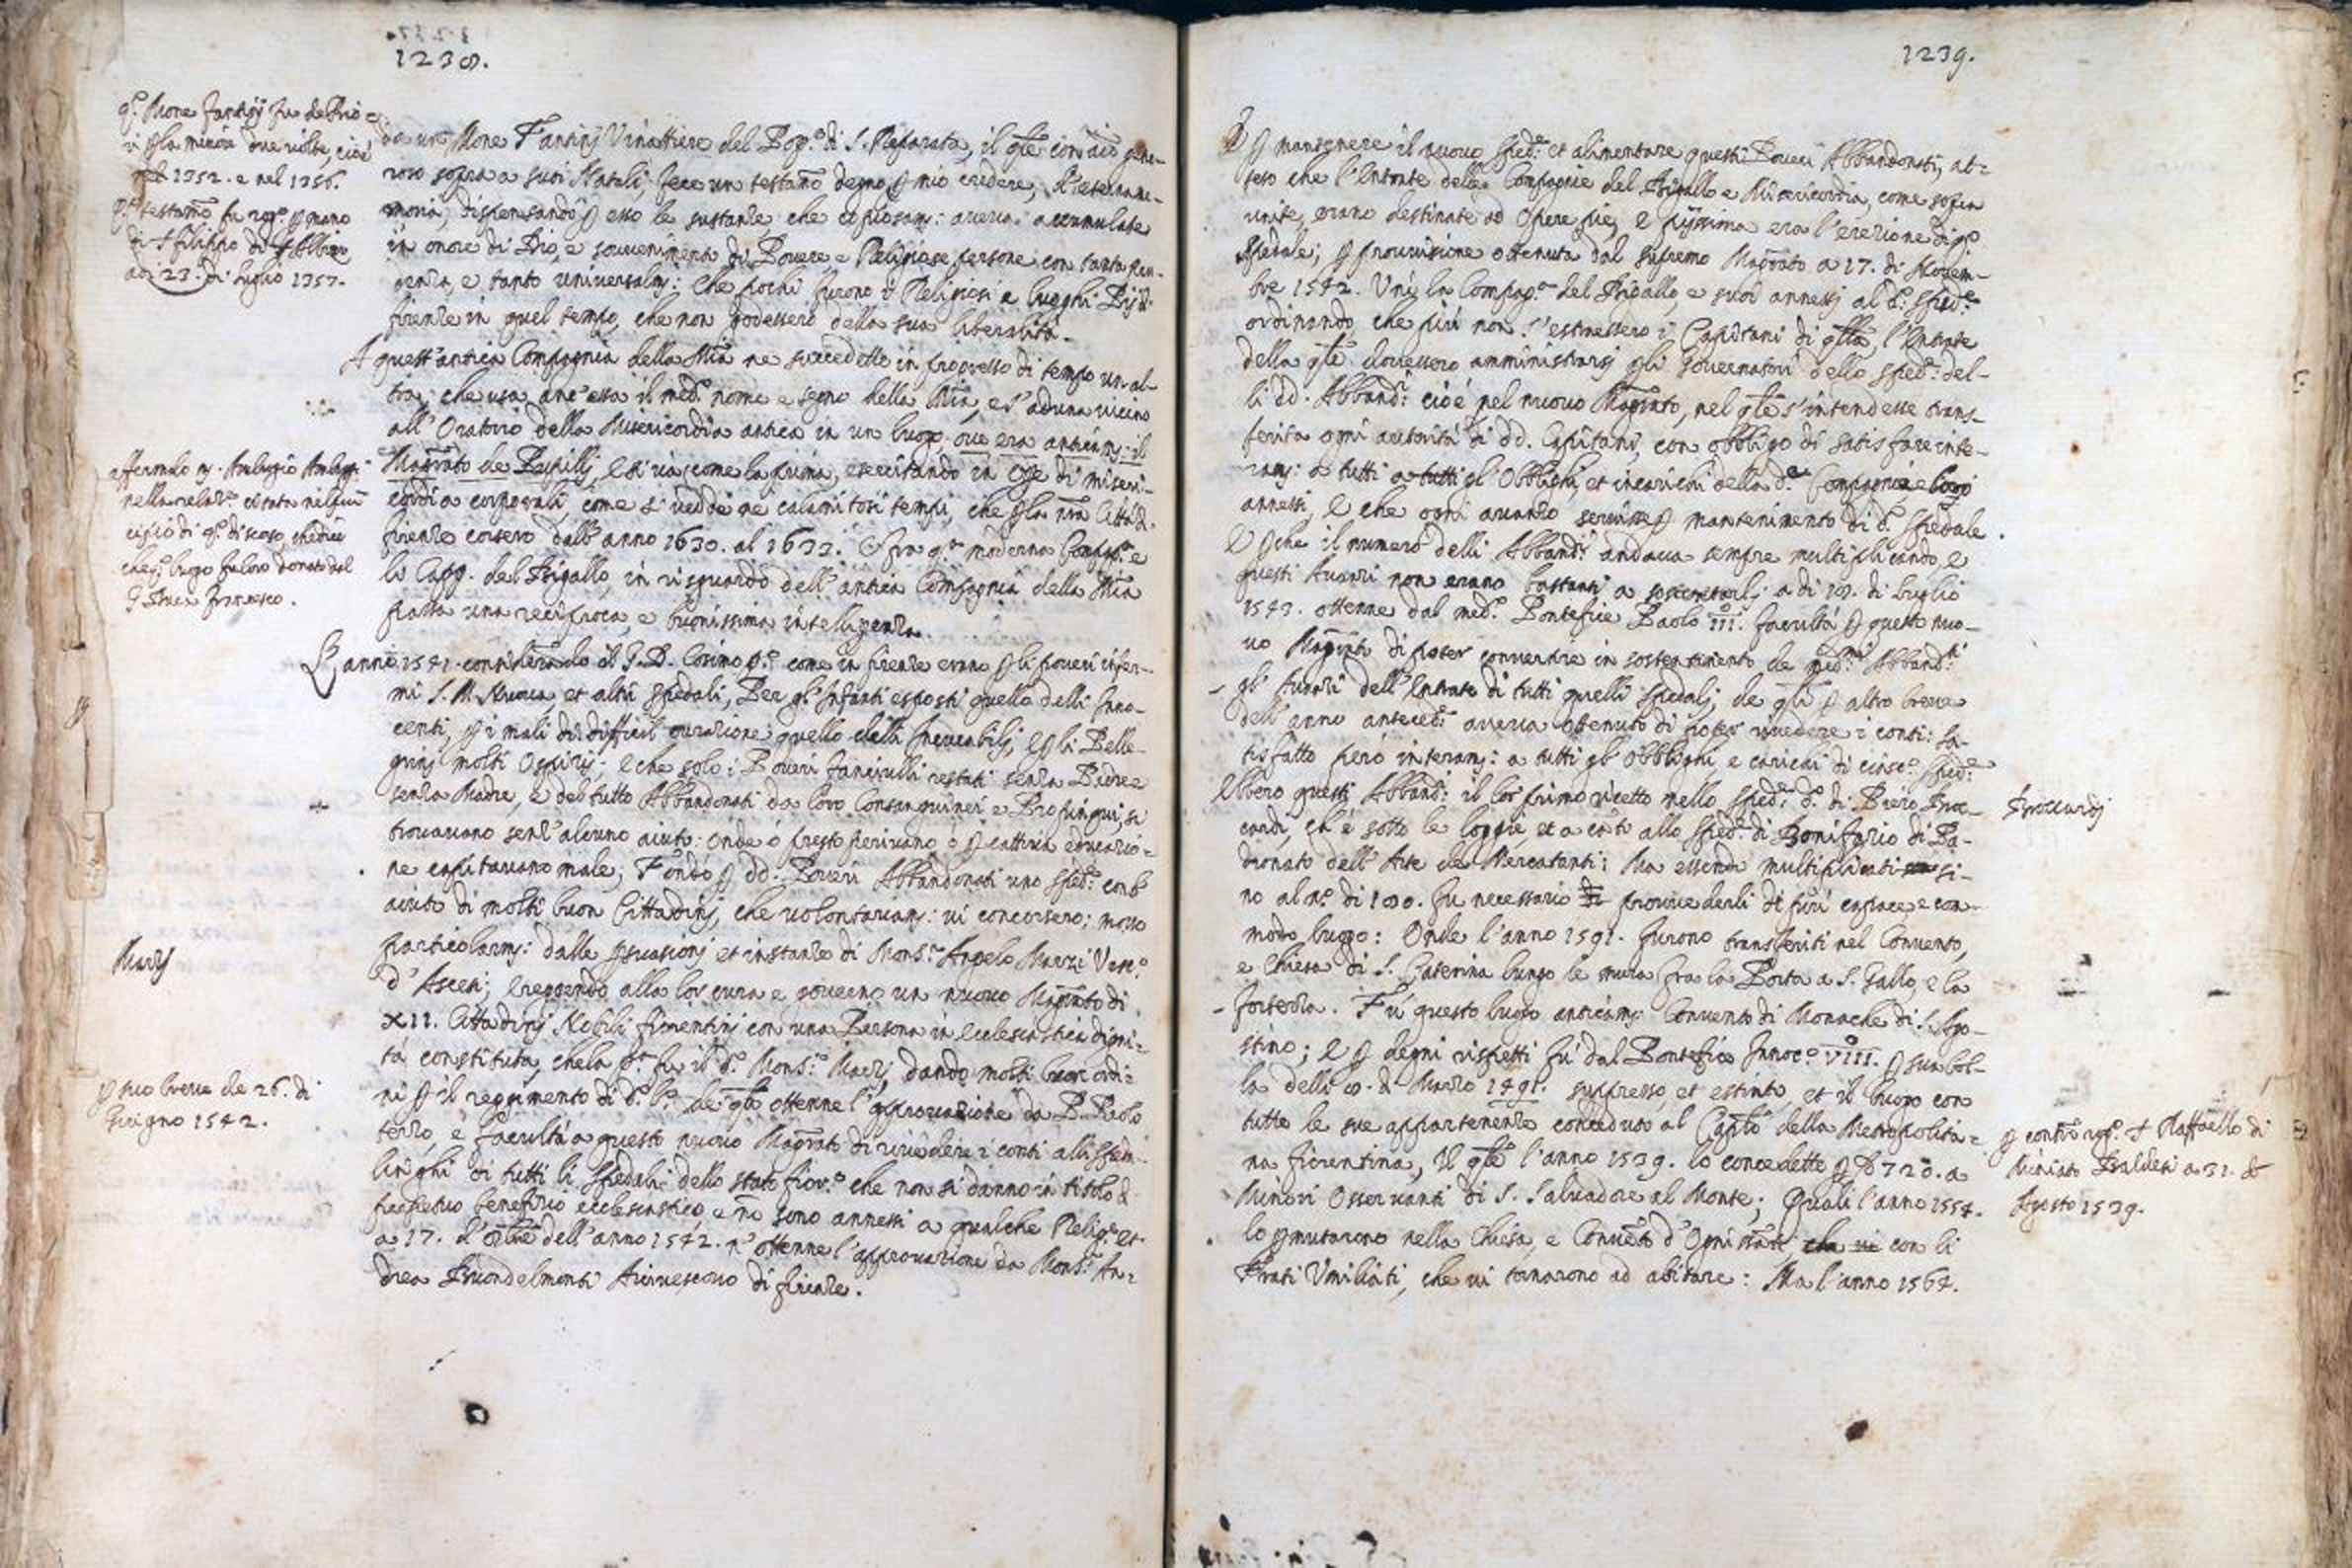 1238.
q.o Mone Fantinj fu de Prio
ri p la minore due volte, cioè
nel 1352. e nel 1356.
q.o testam.o fu rog.o p mano
di S. Filippo di S. Albizo
a di 23. di luglio 1357.
da un Mone Fantinj Vinattiere del Pop.o di S. Reparata, il qle con aio gene-
roso sopra a suoi Natali, fece un testam.o degno p mio credere, d'eterna me-
moria, dispensando p esso le sustanze, che copiosam: aveva accumulate
in onore di Dio, e sovvenimento di Povere e Religiose persone con tanta pru-
denza, e tanto universalm: che pochi furono i Religiosi e luoghi Pij di
firenze in quel tempo, che non godessero della sua liberalità.
A quest'antica Compagnia della Mia ne succedette in progresso di tempo un al-
tra, che usa anc'essa il med.o nome e segno della Mia, e s'aduna vicino
all'Oratorio della Misericordia antica in un luogo ove era anticam: il
Magrato de Pupilli, e si va, come la prima, esercitando in opre di miseri-
cordia corporali, come si vedde ne calamitosi tempi, che p la nra Città di
firenze corsero dall'anno 1630. al 1633. E fra q.a moderna Comp.a e
li Capp. del Bigallo, in risguardo dell'antica Compagnia della Mia
passa una reciproca, e buonissima intelligenza.
nella relaz.e citata nel prin
cipio di q.o discorso, che dice
che q.o luogo fu loro donato dal
G. Duca Francesco.
L'anno 1541. considerando il G.D. Cosimo p.o come in firenze erano p li poveri infer-
mi S. M. Nuova, et altri spedali, Per gl'Infanti esposti quello delli Inno-
centi, p i mali di difficil curazione quello delli Incurabilj, e p li Pelle-
grinj molti Ospizij; e che solo i Poveri fanciulli restati senza Padre e
senza Madre, e del tutto Abbandonati da loro Consanguinei e Propinqui, si
trovavano senz'alcuno aiuto: onde ò presto perivano ò p cattiva educazio=
ne capitavano male; Fondò p dd. Poveri Abbandonati uno sped.e con l'
aiuto di molti buon Cittadinj, che volontariam: vi concorsero: mosso
particolarm: dalle psuasionj et instanze di Mons.r Angelo Marzi Vesc.o
d'Ascesi; e reggendo alla lor cura e governo un nuovo Magrato di
XII. Cittadinj Nobili fiorentinj con una Persona in ecclesiastica digni=
tà constituta, che la p.a fu il d.o Mons.r Marzj, dando molti buon ordi=
ni p il reggimento di d.o l.o de qli ottenne l'approvazione da P. Paolo
terzo, e facultà a questo nuovo Magrato di rivedere i conti alli speda-
linghi di tutti li spedali dello stato fior.o che non si danno in titolo di
perpetuo benefizio ecclesiastico e no sono annessi a qualche Relig.e et
a 17. d'8bre dell'anno 1542. n'ottenne l'approvazione da Mons.r An=
drea Buondelmonti Arcivescovo di firenze.
Marzj
p suo breve de 26. di
Giugno 1542.
1239.
E p mantenere il nuovo sped.e et alimentare questi Poveri Abbandonati, at-
teso che l'Entrate delle Compagnie del Bigallo e Misericordia, come sopra
unite, erano destinate ad Opere pie, e pijssima era l'erezione di q.o
spedale; p provvisione ottenuta dal supremo Magrato a 17. di Novem-
bre 1542. Unì la Compag.a del Bigallo, e suoi annessj al d.o sped.e
ordinando, che più non s'estraessero i Capitani di qlla, l'Entrate
della qle dovessero amministrarsj gli Governatori dello sped.e del-
li dd. Abband.i cioè pel nuovo Magrato, nel qle s'intendesse trans-
ferita ogni autorità di dd. Capitani, con obbligo di satisfare inte-
ram: a tutti a tutti gl'Obblighi, et incarichi della d.a Compagnia e luogi
annessi, e che ogni avanzo servisse p mantenimento di d.o spedale.
E pche il numero delli Abband.i andava sempre multiplicando, e
questi Avanzi non erano bastanti a sostentarli: a di 18. di luglio
1543. ottenne dal med.o Pontefice Paolo III. facultà p questo nuo-
vo Magrato di poter convertire in sostentamento de med.mi Abband.ti
gl'Avanzi dell'Entrate di tutti quelli spedalj, de qli p altro breve
dell'anno anteced.e aveva ottenuto di poter rivedere i conti: sa-
tisfatto però interam: a tutti gl'Obblighi, e carichi di ciasc.o sped.e
Ebbero questi Abband.i il lor primo ricetto nello sped.e d.o di Piero Broc-
cardi, ch'è sotto le loggie, et a canto allo sped.e di Bonifazio di Pa-
dronato dell'Arte de Mercatanti; Ma essendo multiplicati si-
no al n.o di 100. fu necessario provvederli di più capace e com-
modo luogo: Onde l'anno 1591. furono transferiti nel Convento,
e Chiesa di S. Caterina lungo le mura fra la Porta a S. Gallo, e la
fortezza. Fù questo luogo anticam: Convento di Monache di S. Ago-
stino; e p degni rispetti fù dal Pontefice Innoc.o VIII. p sua bol-
la delli 8. di Marzo 1491. suppresso, et estinto, et il luogo con
tutte le sue appartenenze conceduto al Caplo della Metropolita=
na fiorentina, Il qle l'anno 1539. lo concedette p fl 720. a
Minori Osservanti di S. Salvadore al Monte; Quali l'anno 1554.
lo pmutarono nella Chiesa, e Conveto d'Ognissanti, che vi con li
Frati Umiliati, che vi tornarono ad abitare: Ma l'anno 1564.
Broccardj
p contr.o rog.o S. Raffaello di
Miniato Baldesi a 31. di
Agosto 1539.